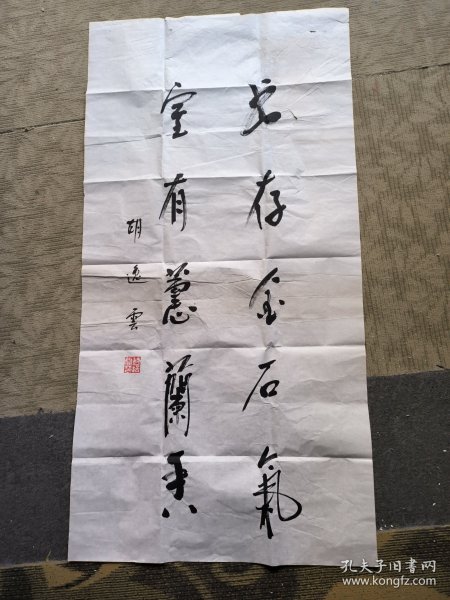 書存金石氣
室有蕙蘭香
胡逸雲
孔夫子旧书网
www.kongfz.com